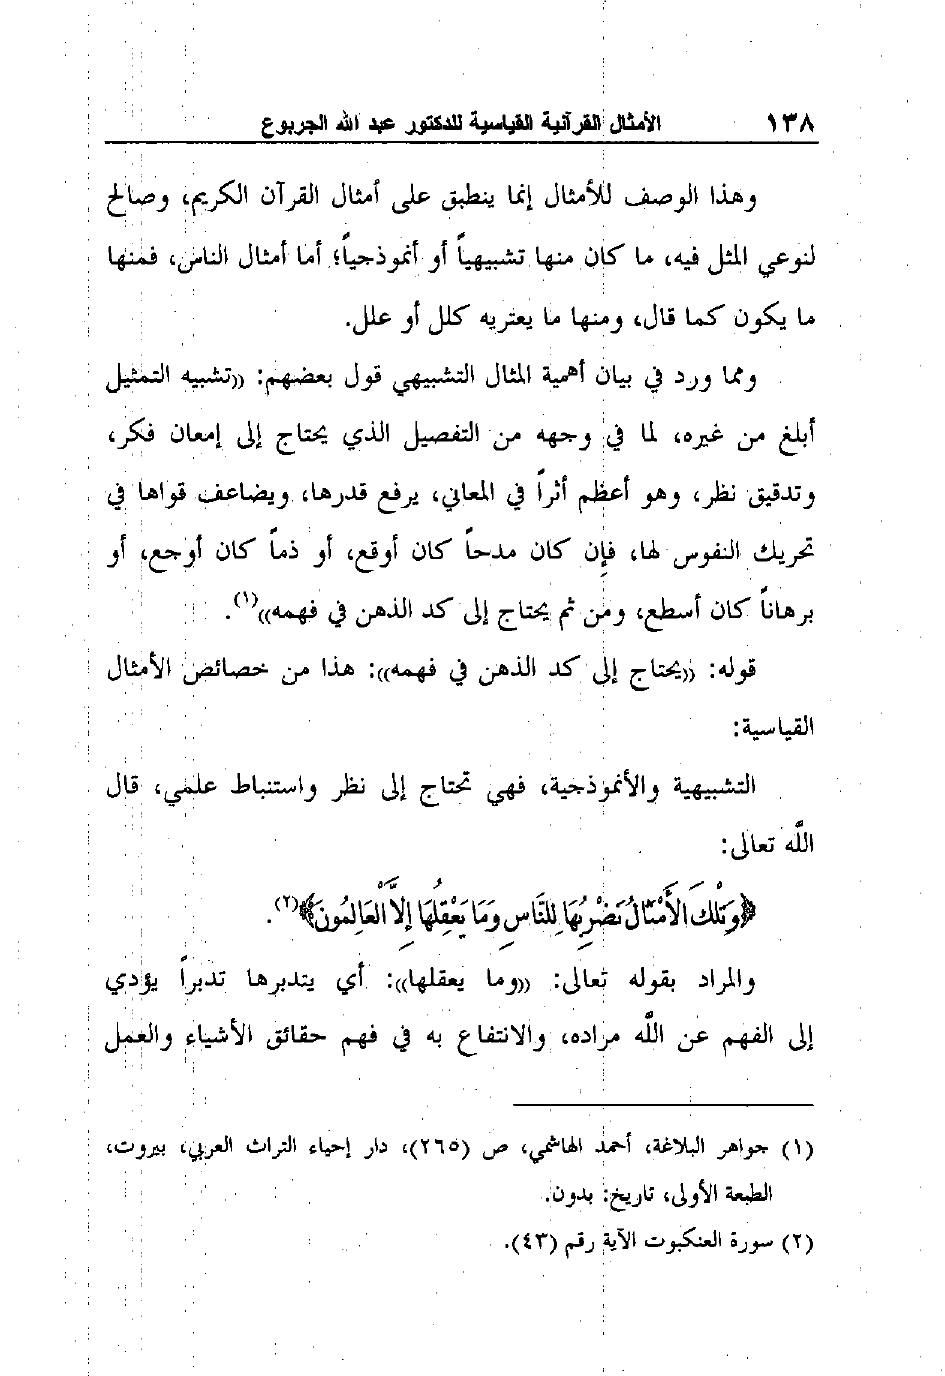 ١٣٨ الأمثال القرآنية القياسية للدكتور عبد الله الجربوع
وهذا الوصف للأمثال إنما ينطبق على أمثال القرآن الكريم، وصالح
لنوعي المثل فيه، ما كان منها تشبيهياً أو أنموذجياً؛ أما أمثال الناس، فمنها
ما يكون كما قال، ومنها ما يعتريه كلل أو علل.
ومما ورد في بيان أهمية المثال التشبيهي قول بعضهم: ((تشبيه التمثيل
أبلغ من غيره، لما في وجهه من التفصيل الذي يحتاج إلى إمعان فكر،
وتدقيق نظر، وهو أعظم أثراً في المعاني، يرفع قدرها، ويضاعف قواها في
تحريك النفوس لها، فإن كان مدحاً كان أوقع، أو ذماً كان أوجع، أو
برهاناً كان أسطع، ومن ثم يحتاج إلى كد الذهن في فهمه))(١).
قوله: ((يحتاج إلى كد الذهن في فهمه)): هذا من خصائص الأمثال
القياسية:
التشبيهية والأنموذجية، فهي تحتاج إلى نظر واستنباط علمي، قال
اللَّه تعالى:
﴿وَتِلْكَ الأَمْثَالُ نَضْرِبُهَا لِلنَّاسِ وَمَا يَعْقِلُهَا إِلاَّ الْعَالِمُونَ﴾(٢).
والمراد بقوله تعالى: ((وما يعقلها)): أي يتدبرها تدبراً يؤدي
إلى الفهم عن اللَّه مراده، والانتفاع به في فهم حقائق الأشياء والعمل
(١) جواهر البلاغة، أحمد الهاشمي، ص (٢٦٥)، دار إحياء التراث العربي، بيروت،
الطبعة الأولى، تاريخ: بدون.
(٢) سورة العنكبوت الآية رقم (٤٣).